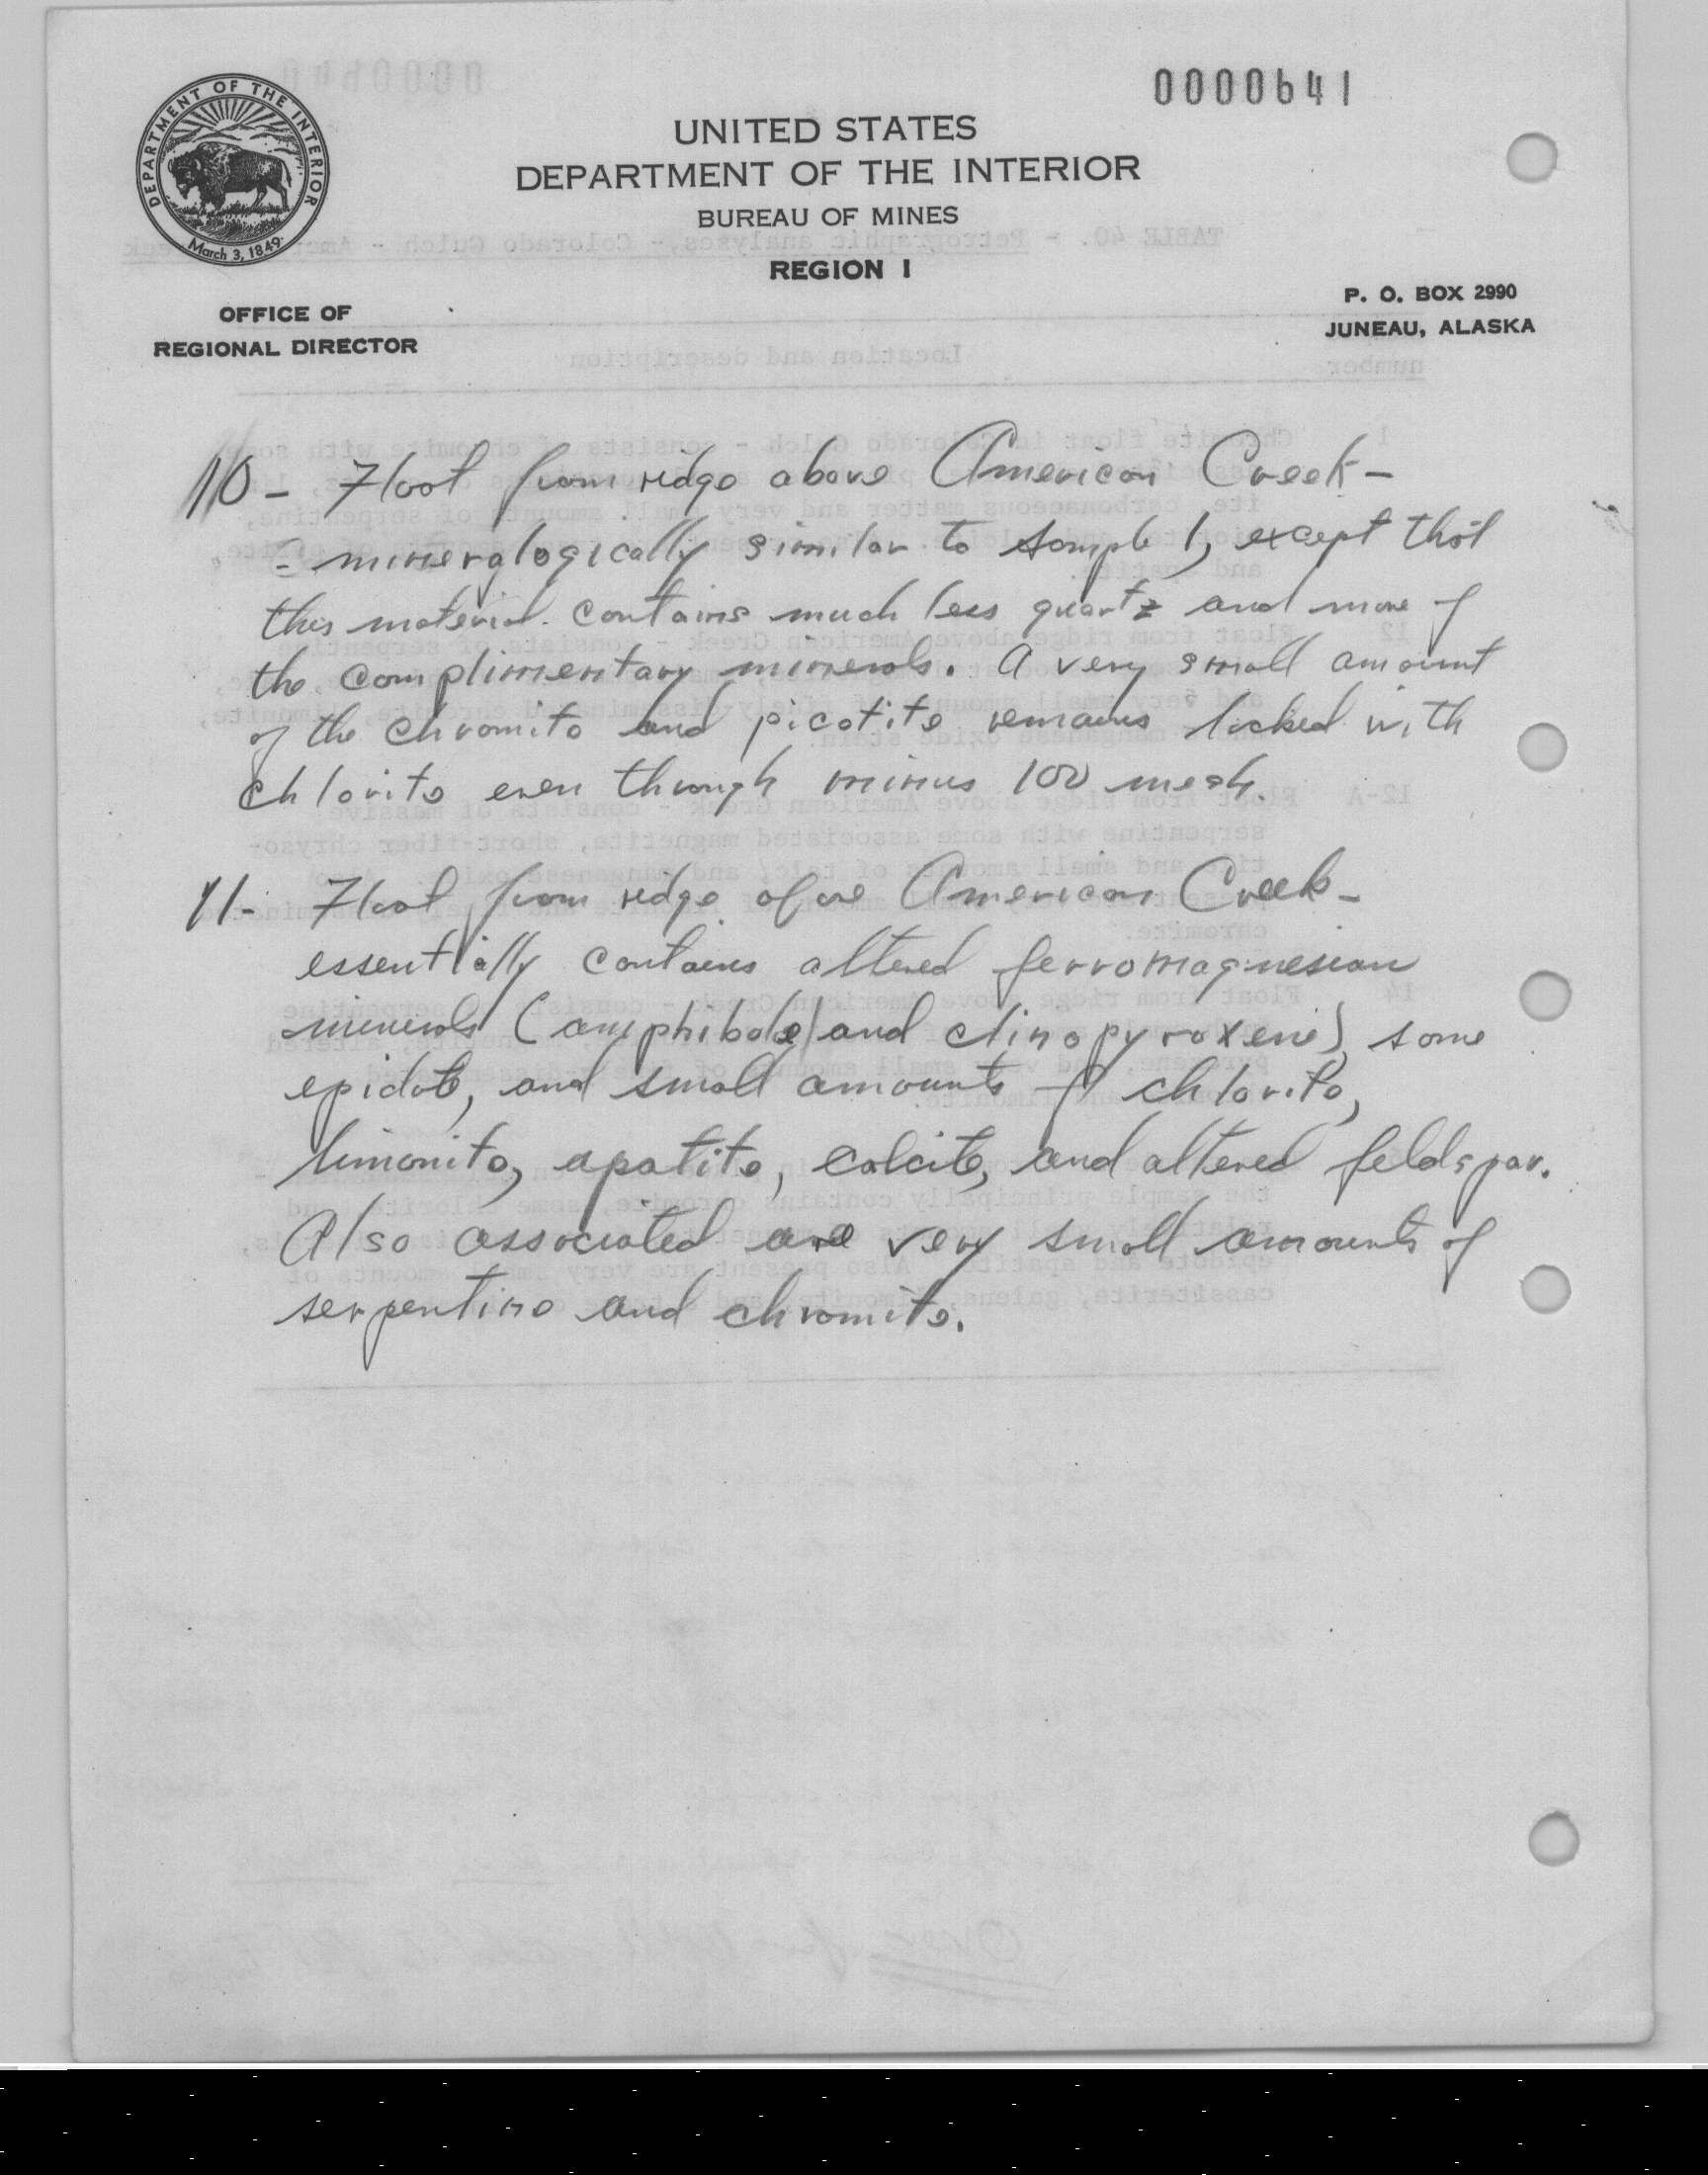 0000641
DEPARTMENT OF THE INTERIOR
March 3, 1849
UNITED STATES
DEPARTMENT OF THE INTERIOR
BUREAU OF MINES
REGION I
OFFICE OF
REGIONAL DIRECTOR
P. O. BOX 2990
JUNEAU, ALASKA
10 - Float from ridge above American Creek -
- mineralogically similar to sample 1, except that
this material contains much less quartz and more of
the complimentary minerals. A very small amount
of the chromite and picotite remains locked with
chlorite even through minus 100 mesh.
11 - Float from ridge above American Creek -
essentially contains altered ferromagnesian
minerals (amphibole and clinopyroxene), some
epidote, and small amounts of chlorite,
limonite, apatite, calcite, and altered feldspar.
Also associated are very small amounts of
serpentine and chromite.